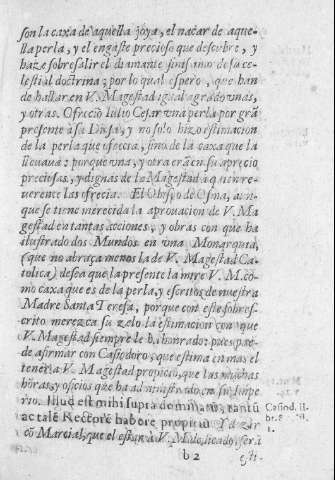 son la caxa de aquella joya, el nacar de aque-
lla perla, y el engaste precioso que descubre, y
haze sobresalir el diamante finissimo de su ce-
lestial doctrina; por lo qual espero, que han
de hallar en V. Magestad igual agrado vnas,
y otras. Ofreciò Iulio Cesar vna perla por grã
presente à su Diosa, y no solo hizo estimacion
de la perla que ofrecia, sino de la caxa que la
lleuaua: porque vna, y otra erã en su aprecio
preciosas, y dignas de la Magestad à quien re-
uerente las ofrecia. El Obispo de Osma, aun-
que se tiene merecida la aprouacion de V. Ma
gestad en tantas acciones, y obras con que ha
ilustrado dos Mundos en vna Monarquia,
(que no abraça menos la de V. Magestad Ca-
tolica) desea que la presente la mire V. M. co-
mo caxa que es de la perla, y escritos de nuestra
Madre Santa Teresa, porque con este sobres-
crito merezca su zelo la estimacion con que
V. Magestad siempre le ha honrado: pues pue-
de afirmar con Casiodoro, que estima en mas el
tener à V. Magestad propicio, que las muchas
honras, y oficios que ha administrado en su Impe
rio. Illud est mihi supra dominatũ, tantũ
actalẽ Rectorẽ habere propitiũ. Y dezir
cõ Marcial, que el estar à V. M. dedicado, serà
Casiod. li.
1.
b 2